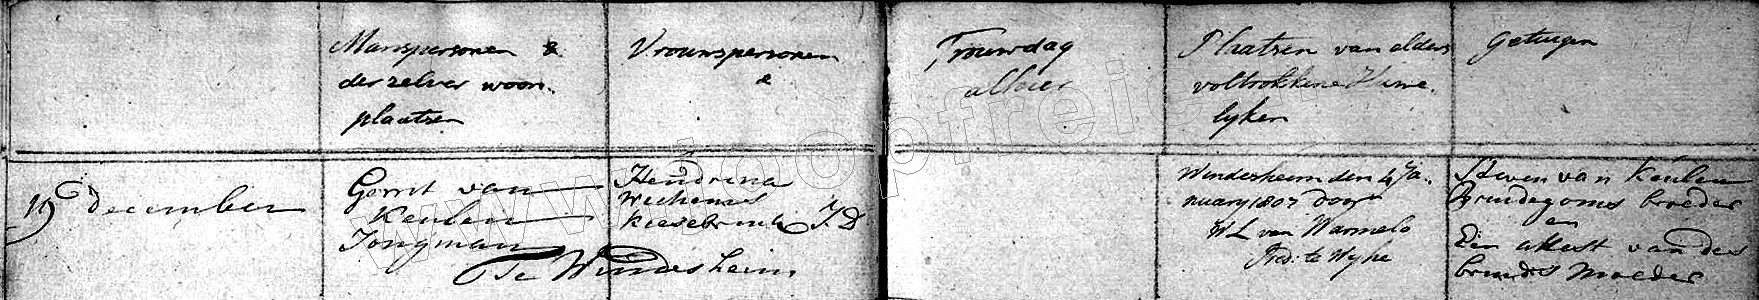 Manspersonen &
derzelver woon
plaatsen
Vrouwspersonen
Trouwdag
alhier
Plaatsen van elders
voltrokkene Huwe
lyken
Getuigen
19 december
Gerrit van
Keulen
Jongman
Hendrina
J D
Te Windesheim
Windesheim den 4 Ja
nuary 1807 door
W L van Warmelo
Pred: te Wyhe
Steven van Keulen
Bruidegoms broeder
en
Een attest van des
bruids Moeder